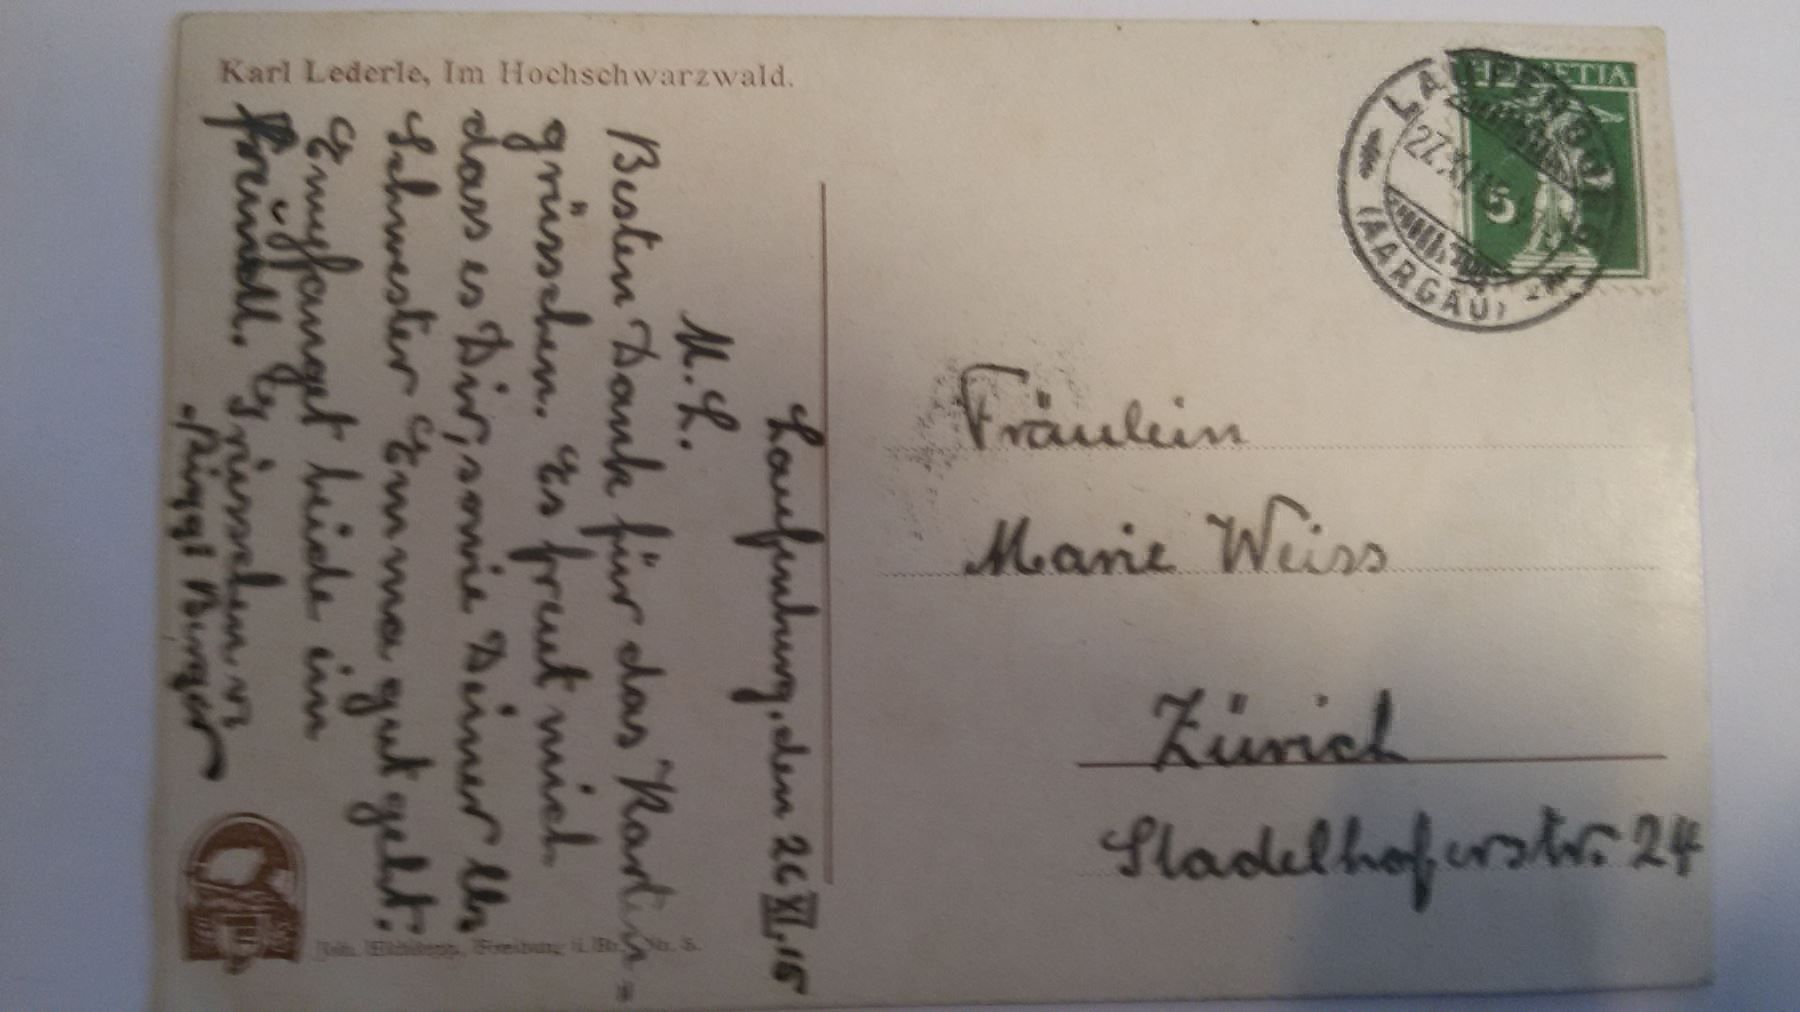 Karl Lederle, Im Hochschwarzwald.
Laufenburg, den 26 XI. 15
M. L.
Besten Dank für das Karten=
grüsschen. Es freut mich
dass es Dir, sowie Deiner lb
Schwester Emma gut geht.
Empfanget beide ein
freundl. Grüsschen v.
Burger
Fräulein
Marie Weiss
Zürich
Stadelhoferstr. 24
HELVETIA
5
LAUFENBURG
27.XI.15
(AARGAU)
Freiburg i. Br. Nr. 8.